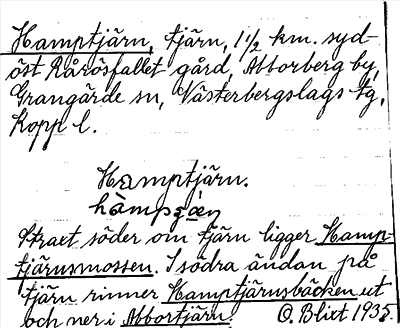 Hamptjärn, tjärn, 1 1/2 km. syd-
öst Rårösfallet gård, Abborberg by,
Grangärde sn, Västerbergslags tg,
Kopp l.
Hamptjärn.
Strax söder om tjärn ligger Hamp-
tjärnsmossen. I södra ändan på
tjärn rinner Hamptjärnsbäcken ut
och ner i Abbortjärn.
O. Blixt 1935.